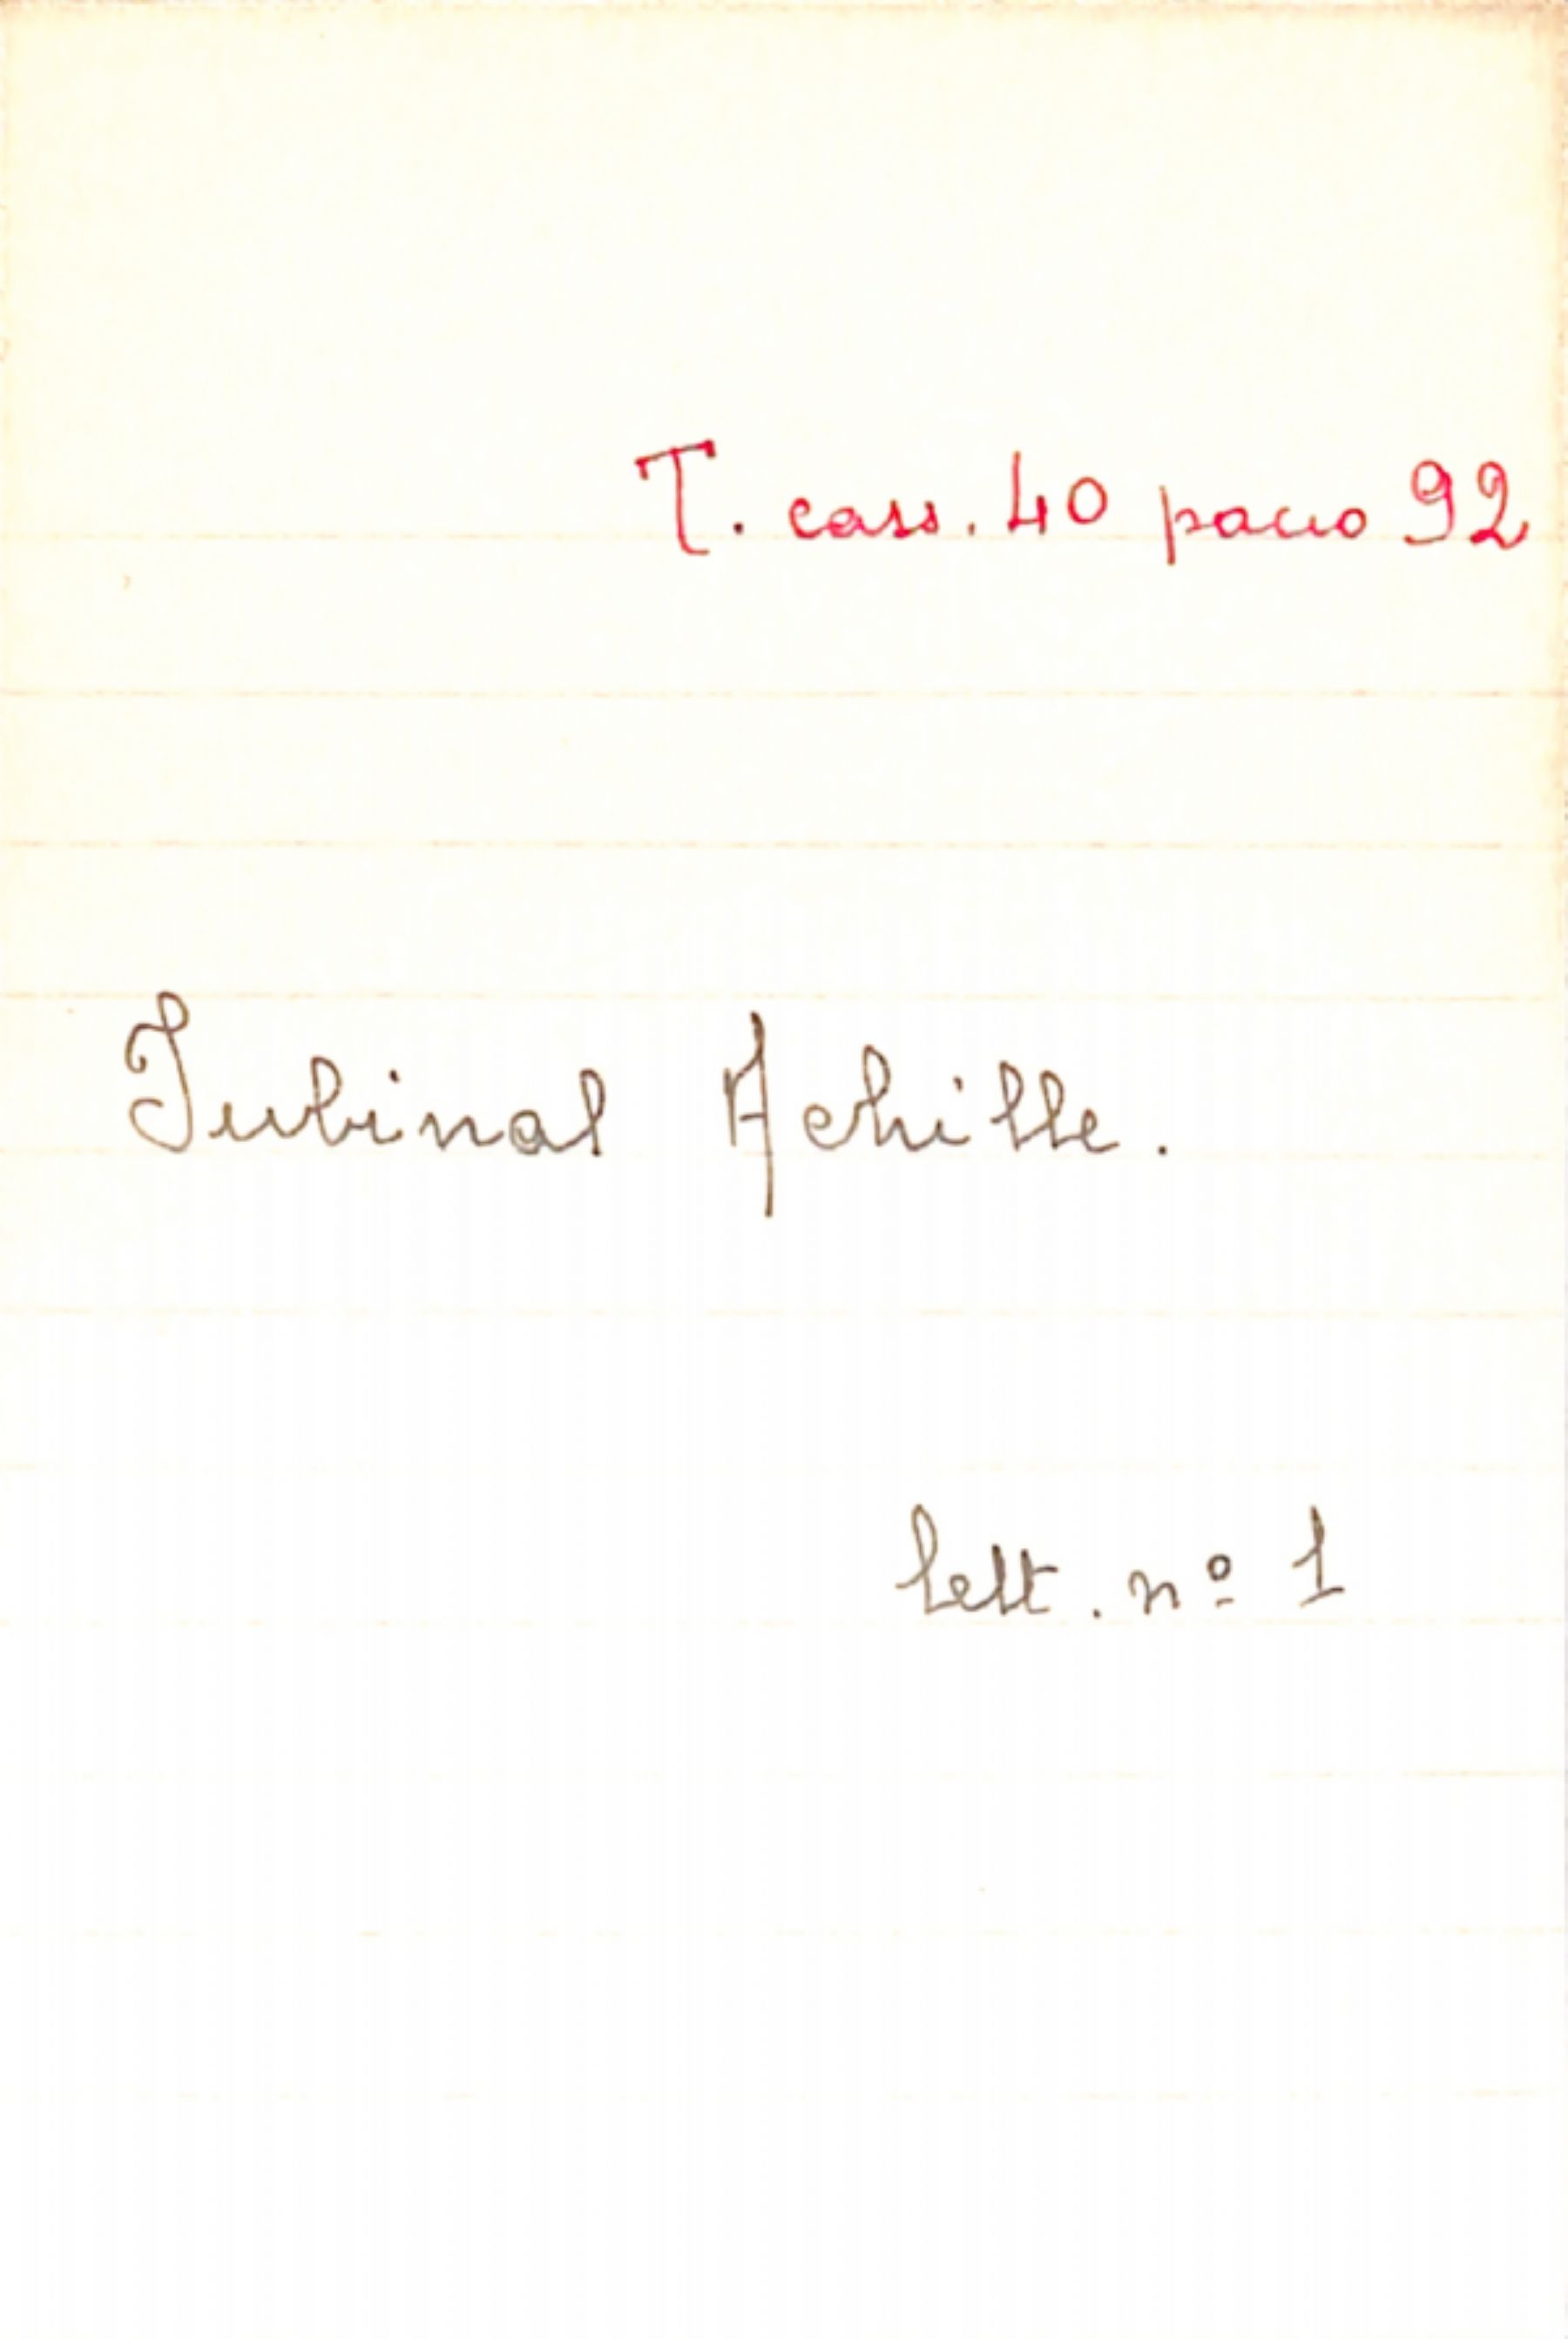 T. cass. 40 pacco 92
Jubinal Achille.
lett. nº 1